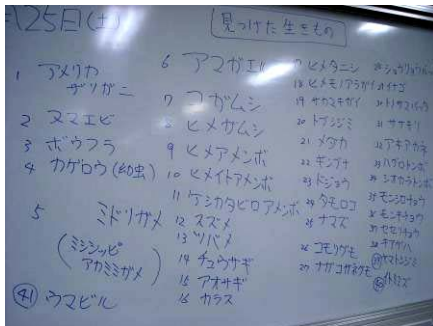 月25日(土)
見つけた生きもの
1 アメリカ
ザリガニ
2 ヌマエビ
3 ボウフラ
4 カゲロウ(幼虫)
5 ミドリガメ
(ミシシッピ
アカミミガメ)
41 ウマビル
6 アマガエル
7 コガムシ
8 ヒメガムシ
9 ヒメアメンボ
10 ヒメイトアメンボ
11 ケシカタビロアメンボ
12 スズメ
13 ツバメ
14 チュウサギ
15 アオサギ
16 カラス
17 ヒメタニシ
18 ヒメモノアラガイ
19 サカマキガイ
20 トブシジミ
21 メダカ
22 ギンブナ
23 ドジョウ
24 タモロコ
25 ナマズ
26 コモリグモ
27 ナガコガネグモ
29 イナゴ
31 ササキリ
32 アキアカネ
33 ハグロトンボ
34 シオカラトンボ
35 モンシロチョウ
36 モンキチョウ
37 セセリチョウ
38 キアゲハ
39 ヤマトシジミ
40 イトミミズ